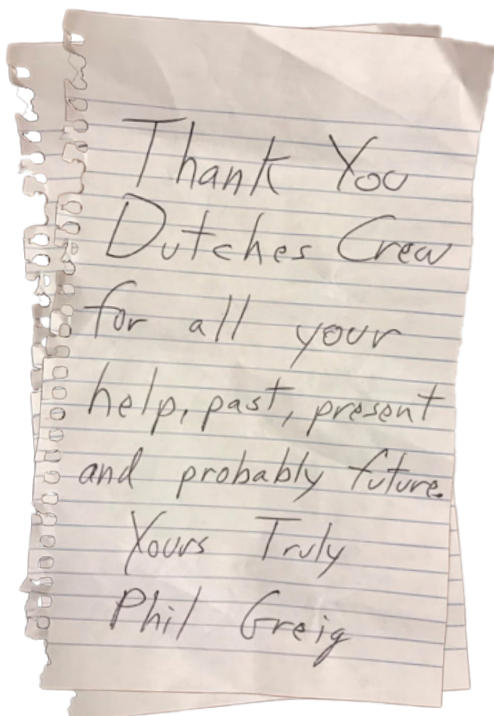 Thank You
Dutches Crew
for all your
help, past, present
and probably future.
Yours Truly
Phil Greig